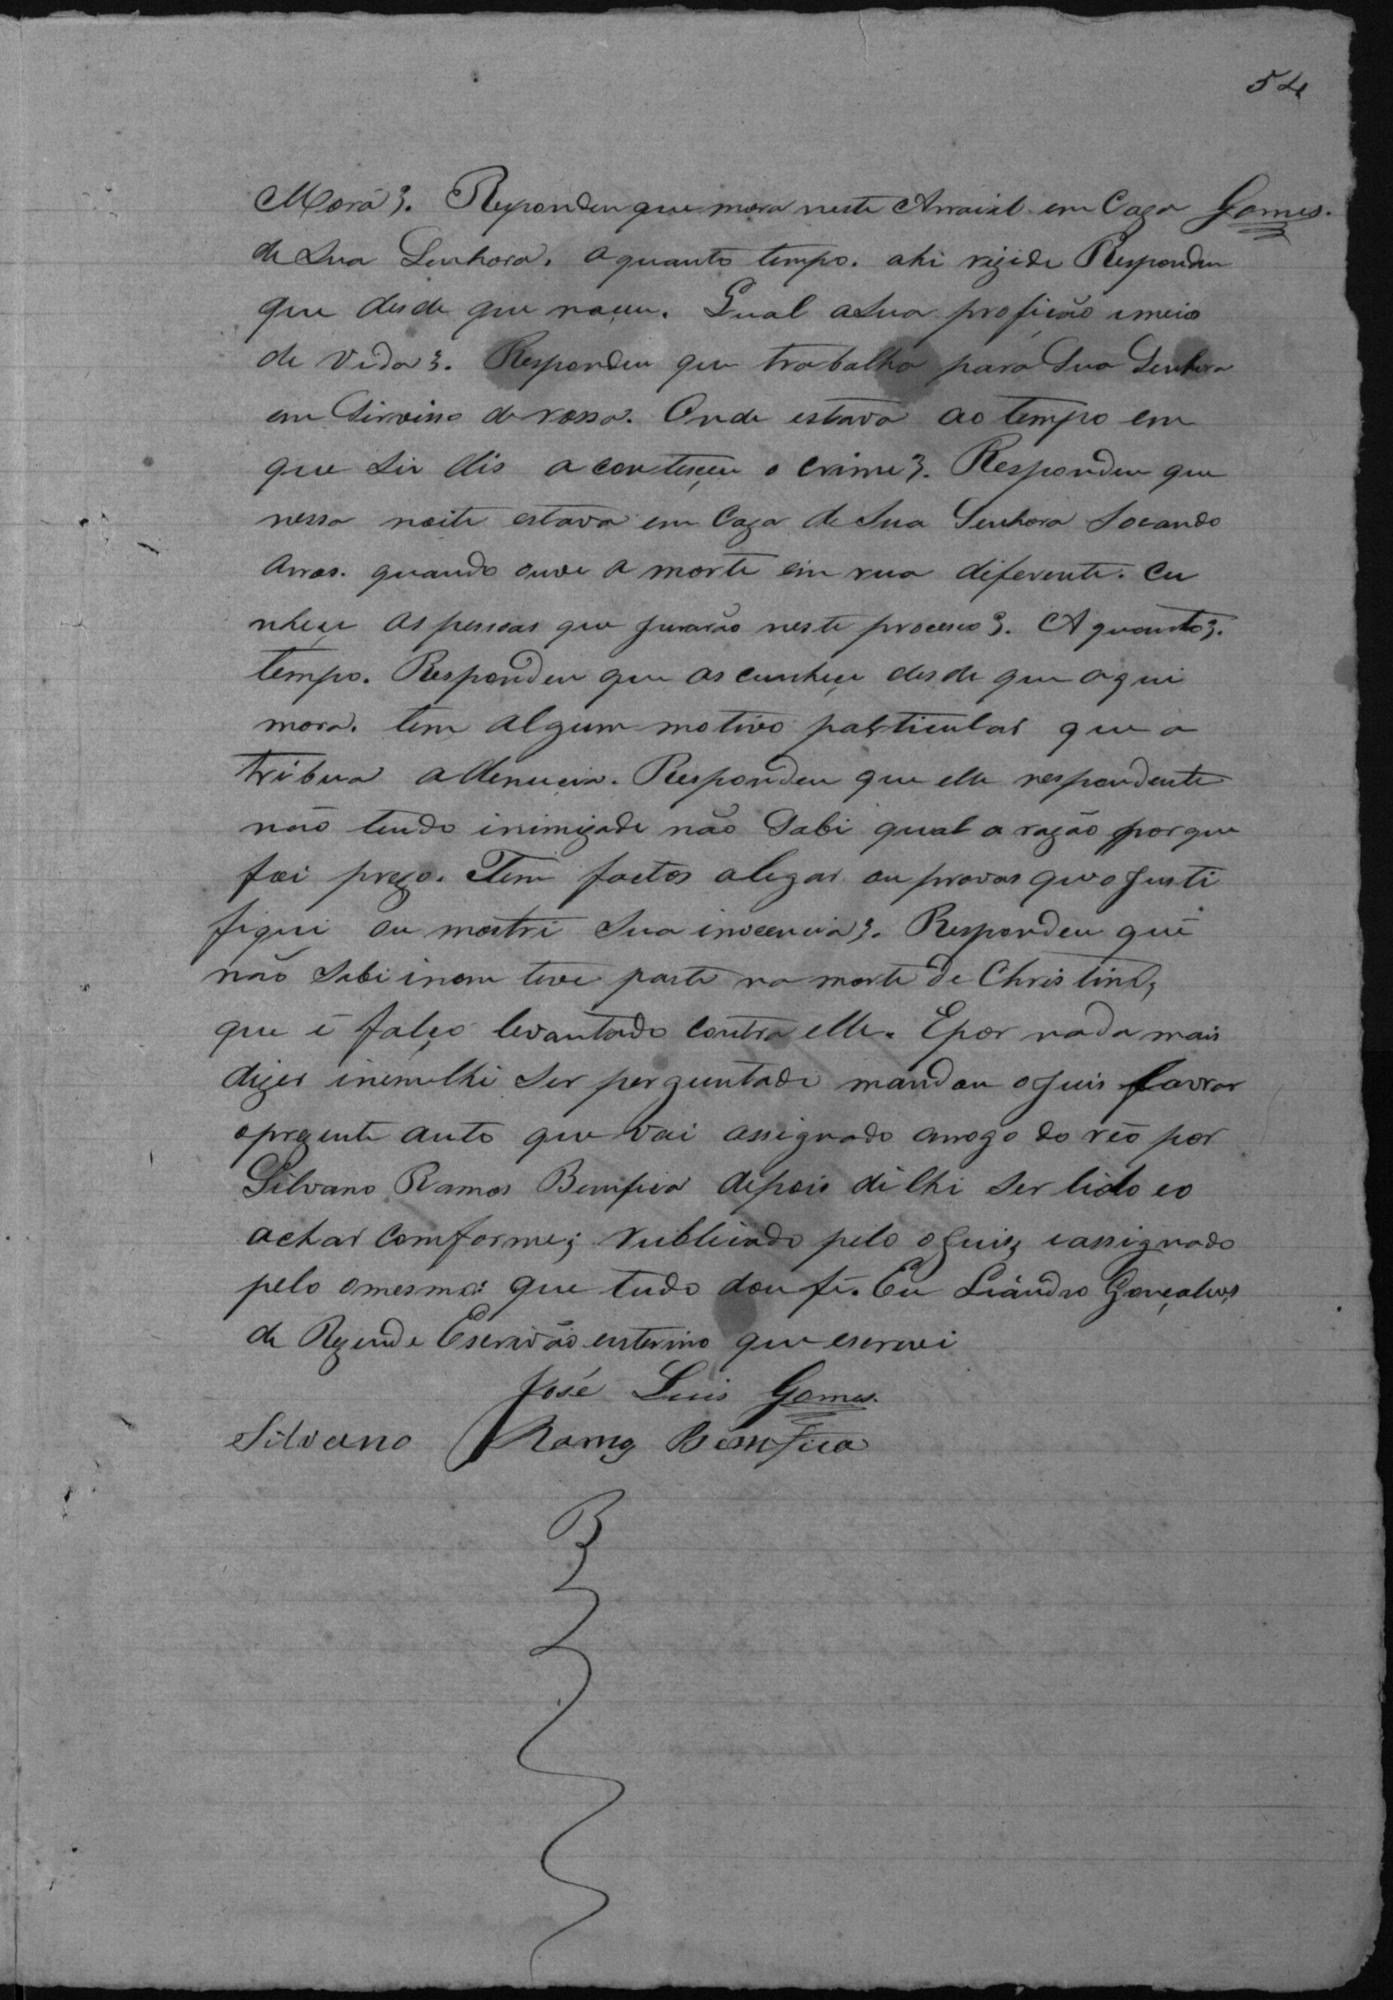 54
Mora?. Respondeu que mora neste Arraial em Caza Gomes.
de Sua Senhora. aquanto tempo. ahi rezide Respondeu
que desde que naceu. Qual aSua proficão emeio
de vida?. Respondeu que trabalha para Sua Senhora
em Sirviso de rossa. Onde estava ao tempo em
que Sir dis aconteçeu o crime?. Respondeu que
nessa noite estava em Caza de Sua Senhora Socando
Arros. quando ouve a morte em rua diferente. Cu
nheçe as pessoas que jurarão neste processo?. A quanto?.
tempo. Respondeu que as cunheçe desde que aqui
mora. tem algum motivo particular que a
tribua adenucia. Respondeu que elle respondente
não tendo inimizade não Sabi qual a razão porque
foi prezo. Tem factos alegar ou provas que o justi
fiqui ou mostri Sua inocencia?. Respondeu que
não Sabi inem teve parte na morte de Christina,
que é falço levantado contra elle. Epor nada mais
dizer inemlhi Ser perguntado mandou o juis lavrar
oprezente auto que vai assignado arrogo do réo por
Silvano Ramos Bemfica depois dilhi Ser lido eo
achar comforme; rubliado pelo ojuis, eassignado
pelo omesmo: que tudo dou fé. Eu Liândro Gonçalves
de Rezende Escrivão enterino que escrevi
José Luis Gomes.
Silvano Ramos Bemfica